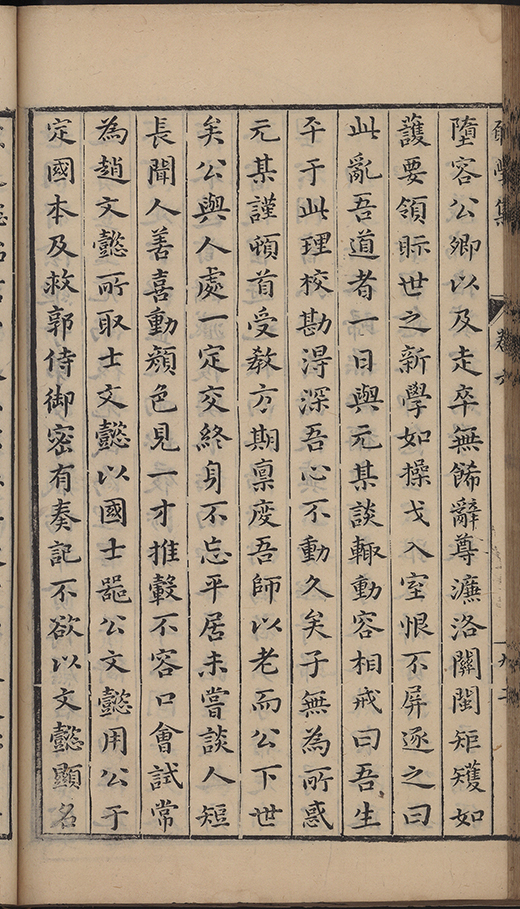 墮容公卿以及走卒無餙辭尊濂洛關閩矩矱如
護要領眎世之新學如操戈入室恨不屏逐之曰
此亂吾道者一日與元某談輙動容相戒曰吾生
平于此理校勘淂深吾心不動久矣子無為所惑
元某謹頓首受教方期稟度吾師以老而公下世
矣公與人處一定交終身不忘平居未嘗談人短
長聞人善喜動顏色見一才推轂不容口會試常
為趙文懿所取士文懿以國士噐公文懿用公于
定國本及救郭侍御密有奏記不欲以文懿顯名